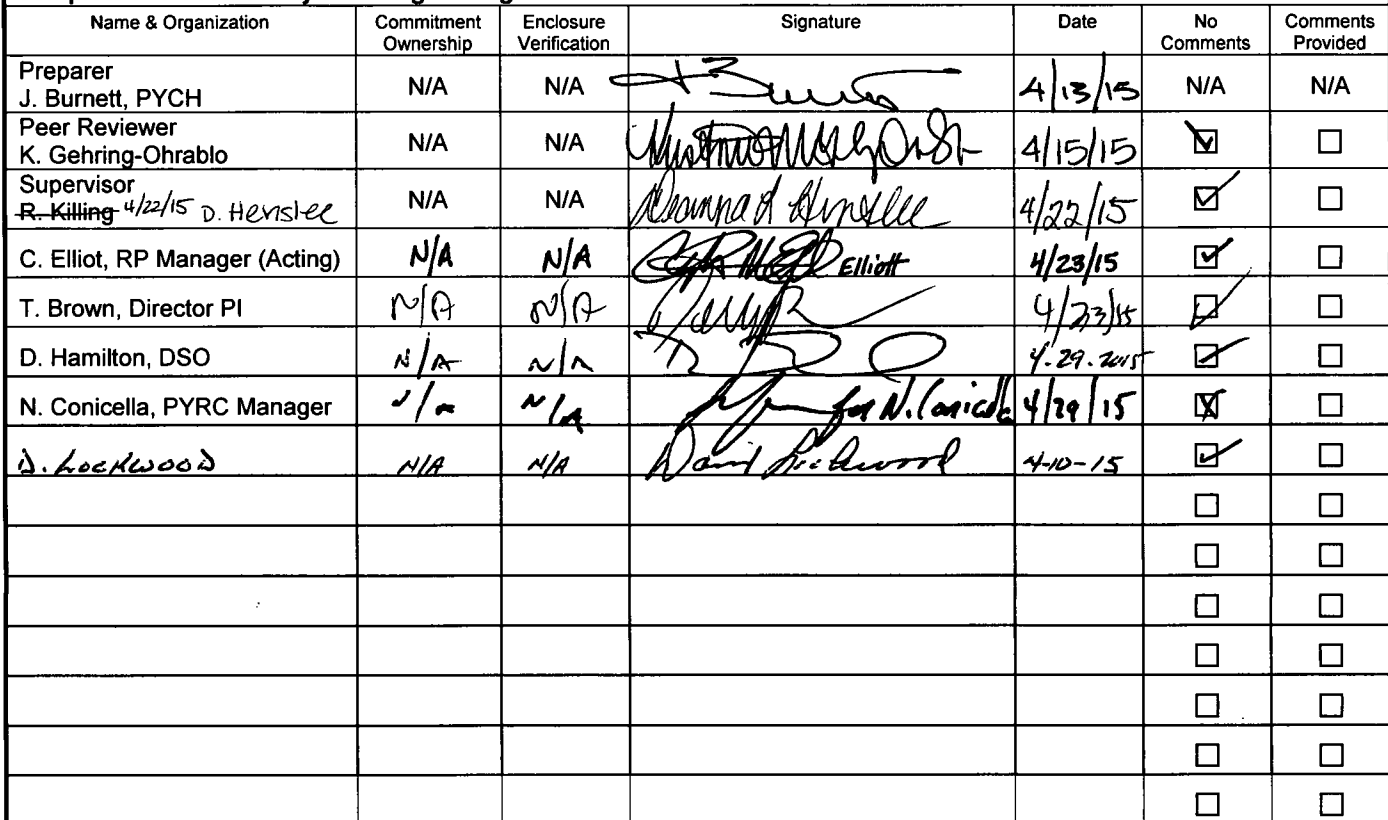 Name & Organization Commitment Ownership Enclosure Verification Signature Date No Comments Comments Provided
Preparer
J. Burnett, PYCH N/A N/A 4/13/15 N/A N/A
Peer Reviewer
K. Gehring-Ohrablo N/A N/A 4/15/15
Supervisor
R. Killing 4/22/15 D. Henslee N/A N/A Deanna d Henslee 4/22/15
C. Elliot, RP Manager (Acting) N/A N/A Elliott 4/23/15
T. Brown, Director PI N/A N/A 4/23/15
D. Hamilton, DSO N/A N/A 4.29.2015
N. Conicella, PYRC Manager N/A N/A for N. Conicella 4/29/15
D. LOCKWOOD N/A N/A David Lockwood 4-10-15